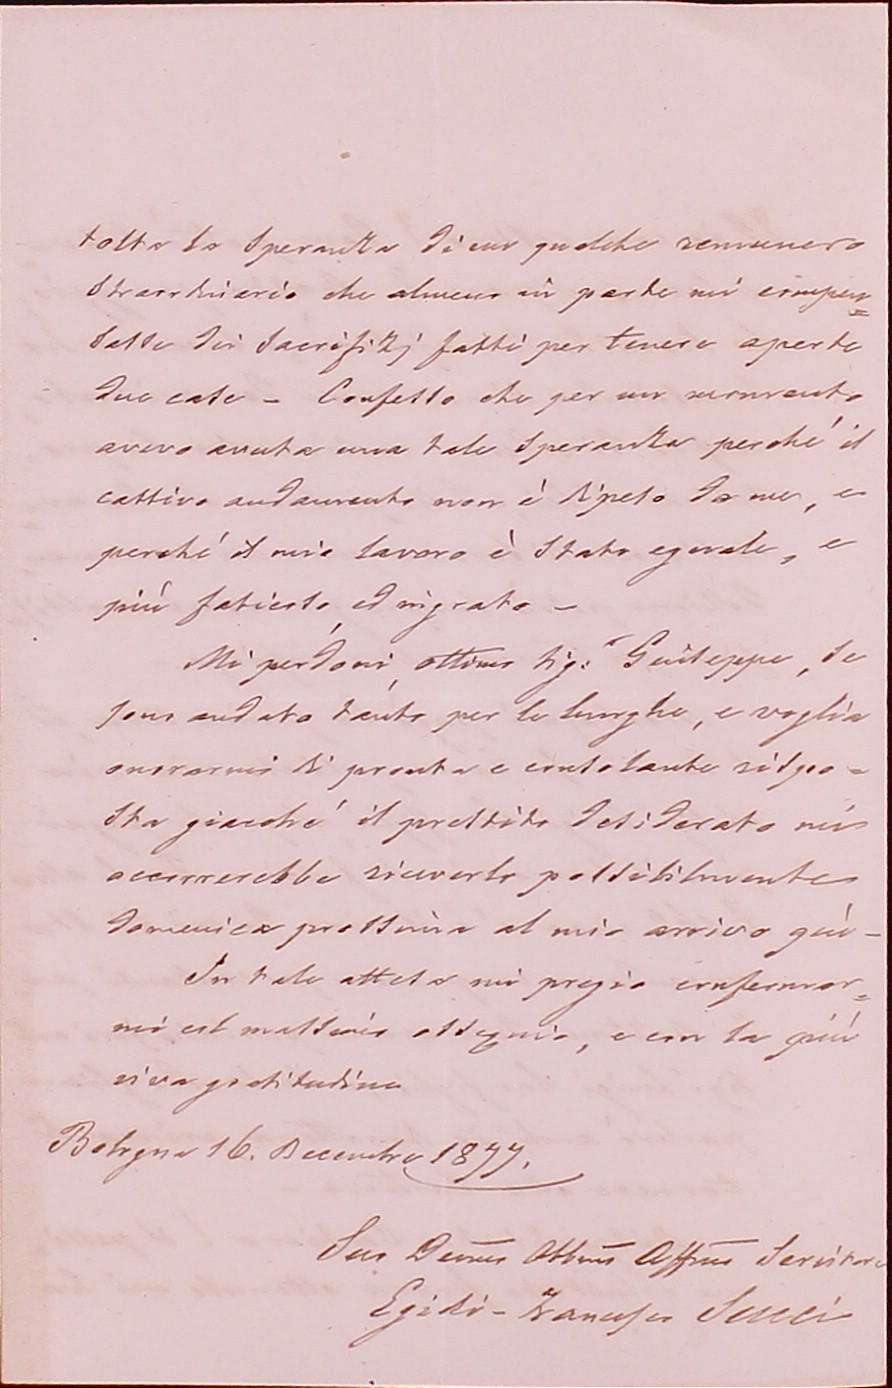 tolta la speranza di un qualche remunero
straordinario che almeno in parte mi compen=
sasse dei sacrifizj fatti per tenere aperte
due case - Confesso che per un momento
avevo avuta una tale speranza perché il
cattivo andamento non è dipeso da me, e
perché il mio lavoro è stato eguale, e
più faticoso, ed ingrato -
Mi perdoni, ottimo Sig:r Giuseppe, se
sono andato tanto per le lunghe, e voglia
onorarmi di pronta e consolante rispo=
sta giacché il prestito desiderato mi
occorrerebbe riceverlo possibilmente
domenica prossima al mio arrivo giù -
In tale attesa mi pregio confermar=
mi col massimo ossequio, e con la più
viva gratitudine
Bologna 16. Decembre 1877.
Suo Devmo Obbmo Affmo Servitore
Egidio-Francesco Succi